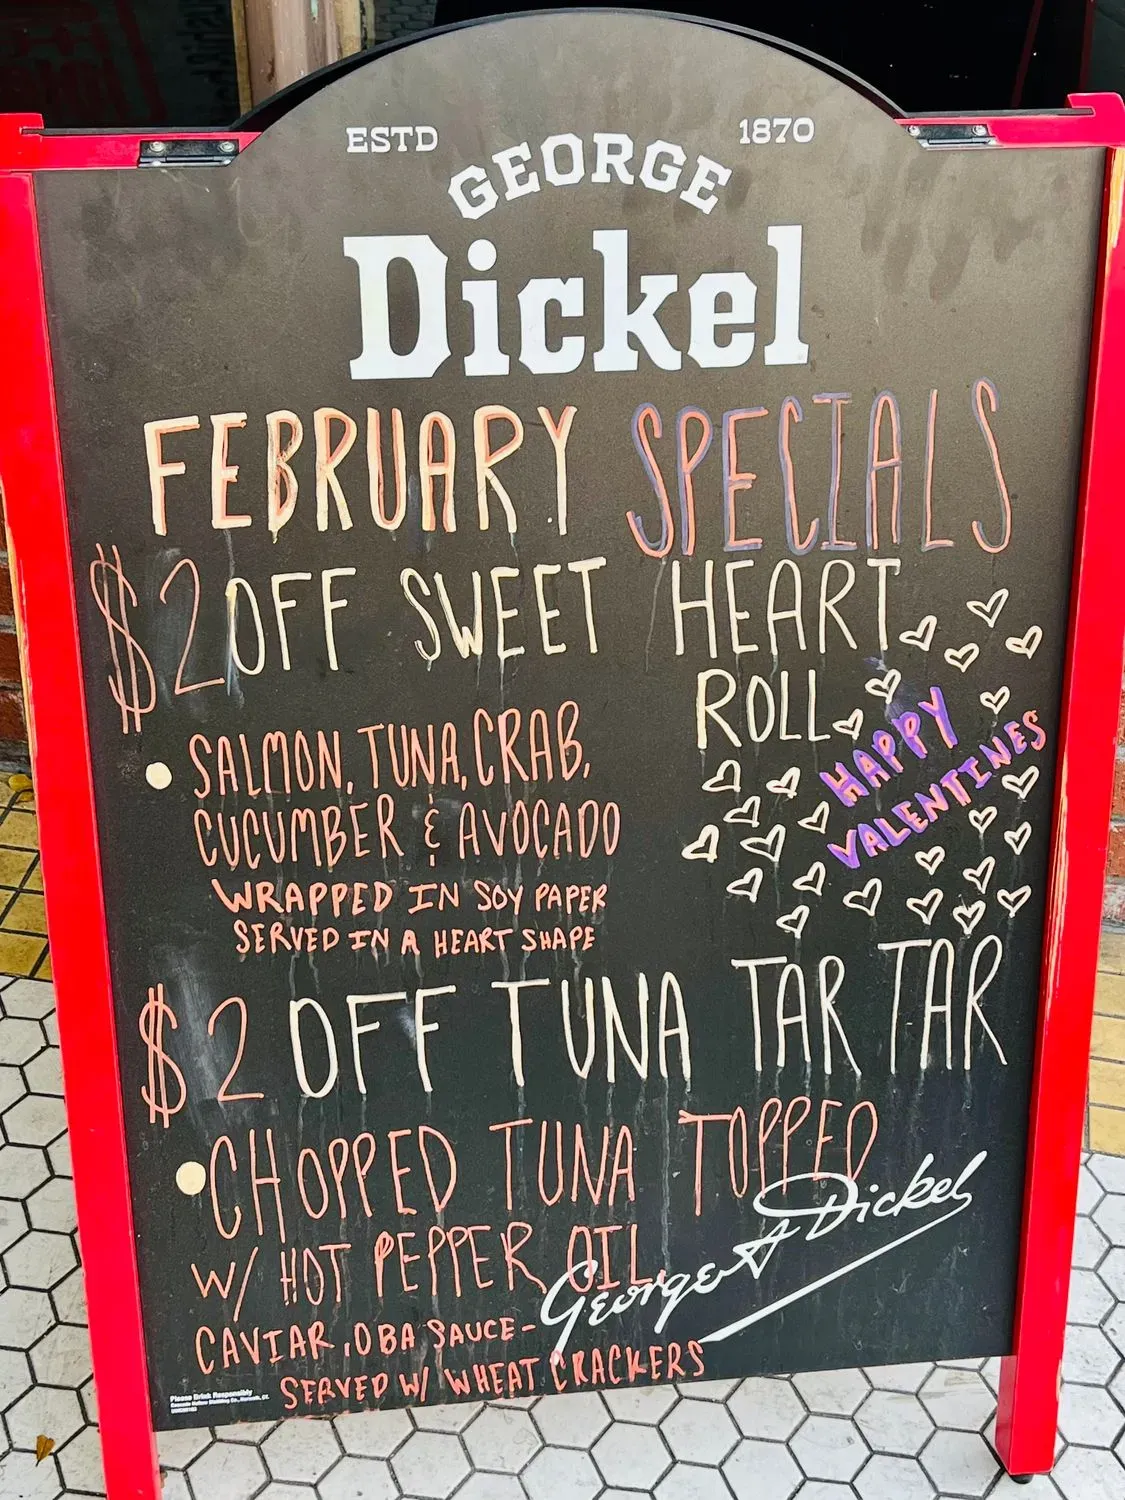 ESTD 1870
GEORGE
Dickel
FEBRUARY SPECIALS
$2 OFF SWEET HEART
ROLL
HAPPY
VALENTINES
• SALMON, TUNA, CRAB,
CUCUMBER & AVOCADO
WRAPPED IN SOY PAPER
SERVED IN A HEART SHAPE
$2 OFF TUNA TAR TAR
• CHOPPED TUNA TOPPED
W/ HOT PEPPER OIL,
CAVIAR, OBA SAUCE-
SERVED W/ WHEAT CRACKERS
George A Dickel
Please Drink Responsibly